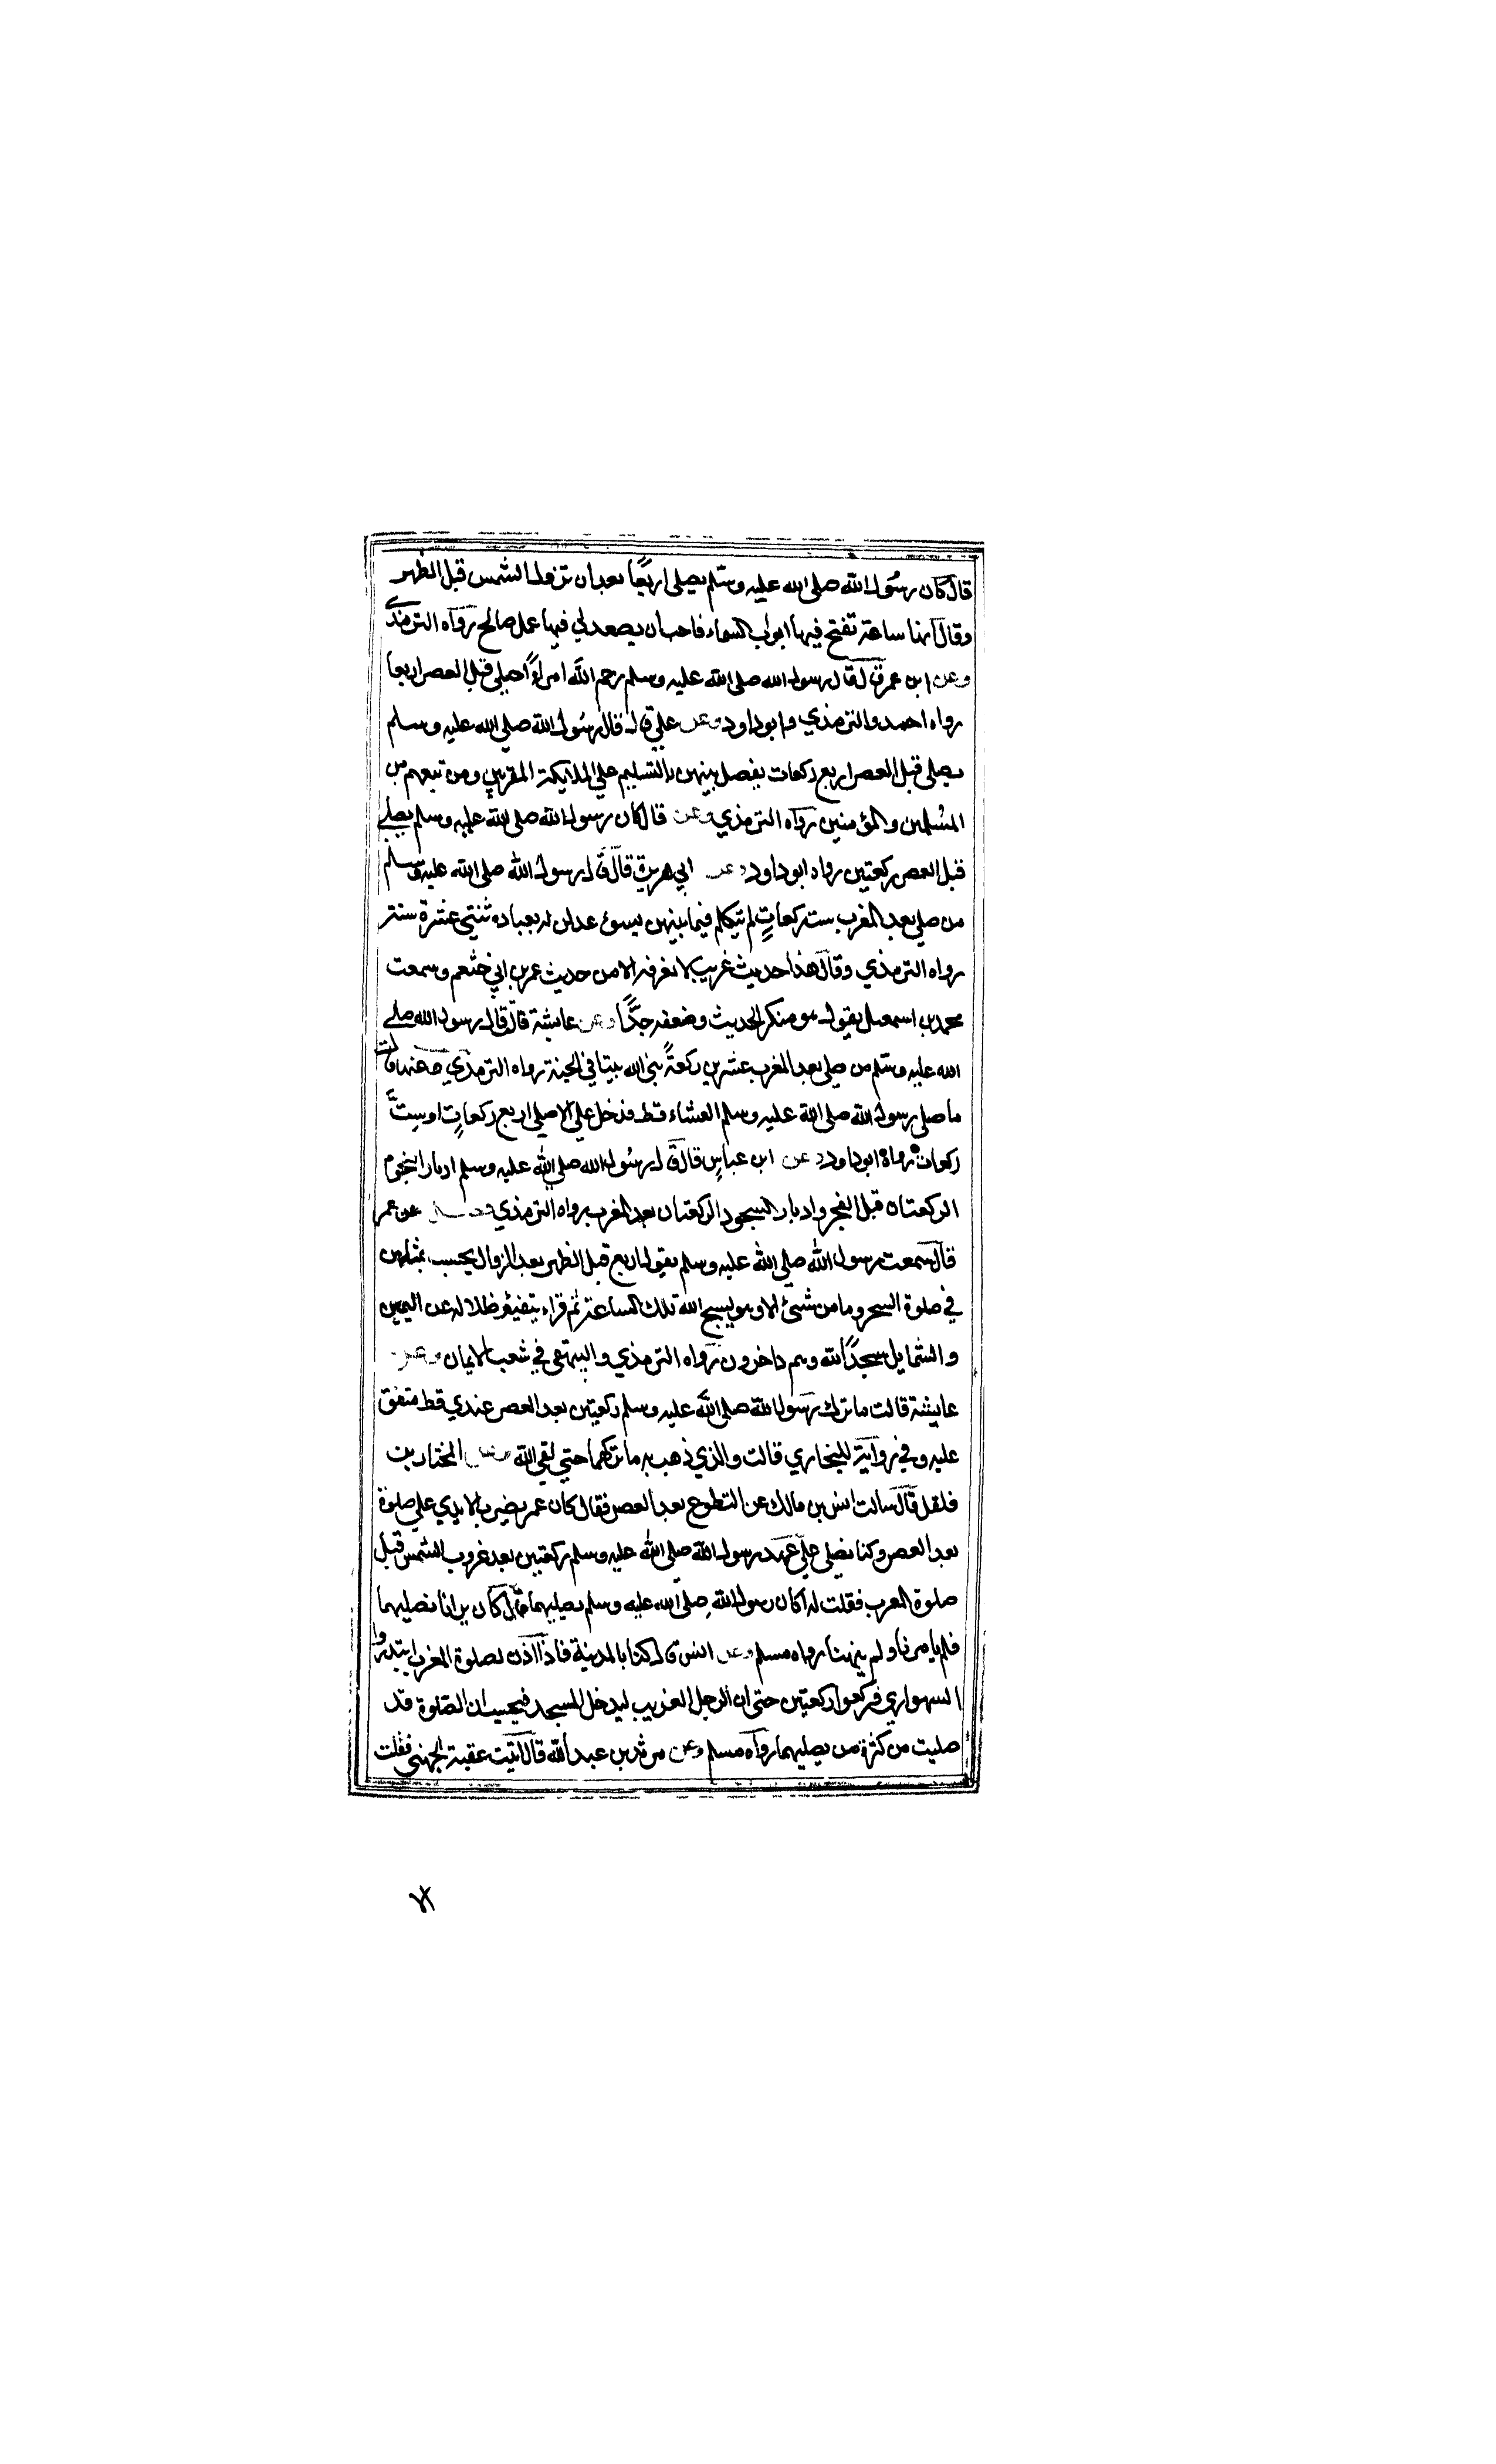 قال كان رسُول الله صلى الله عليه وسلم يصلى اربعًا بعد ان تزول الشمس قبل الظهر
وقال انها ساعة تفتح فيها ابواب السماء فاحب ان يصعد لي فيها عمل صالح رواه الترمذي
وعن ابن عمر قال قال رسول الله صلى الله عليه وسلم رحم الله امرأً صلى قبل العصر اربعا
رواه احمد والترمذي وابوداود وعن علي قال قال رسُول الله صلي الله عليه وسلم
يصلى قبل العصر اربع ركعات يفصل بينهن بالتسليم علي الملايكة المقربين ومن تبعهم من
المسُلمين والمؤمنين رواه الترمذي وعن قال كان رسول الله صلى الله عليه وسلم يصلي
قبل العصر ركعتين رواه ابوداود وعن ابي هريرة قال قال رسول الله صلى الله عليه وسلم
من صلي بعد المغرب ست ركعاتٍ لم يتكلم فيما بينهن بسوء عدلن له بعبادة ثنتي عشرة سنة
رواه الترمذي وقال هذا حديث غريب لا نعرفه الا من حديث عمر بن ابي خثعم وسمعت
محمد بن اسمعيل يقول هو منكر الحديث وضعفه جدًّا وعن عايشة قال قال رسول الله صلي
الله عليه وسلم من صلي بعد المغرب عشرين ركعةً بنى الله بيتا في الجنة رواه الترمذي وعنها قالت
ما صلى رسول الله صلى الله عليه وسلم العشاء قط فدخل علي الا صلي اربع ركعاتٍ او ستَّ
ركعات رواه ابوداود وعن ابن عباسٍ قال قال رسُول الله صلي الله عليه وسلم ادبار النجوم
الركعتان قبل الفجر وادبار السجود الركعتان بعد المغرب رواه الترمذي عن عمر
قال سمعت رسول الله صلي الله عليه وسلم يقول اربع قبل الظهر بعد الزوال يحسب بمثلهن
في صلوة السحر وما من شيئ الا وهو يسبح الله تلك الساعة ثم قراء يتفيؤ ظلاله عن اليمين
والشمايل سجدًا لله وهم داخرون رواه الترمذي والبيهقي في شعب الايمان وعن
عايشة قالت ما ترك رسول الله صلى الله عليه وسلم ركعتين بعد العصر عندي قط متفق
عليه وفي رواية للبخاري قالت والذي ذهب به ما تركهما حتي لقي الله وعن المختار بن
فلفل قال سالت انس بن مالك عن التطوع بعد العصر فقال كان عمر يضرب الايدي علي صلوة
بعد العصر وكنا نصلي علي عهد رسول الله صلى الله عليه وسلم ركعتين بعد غروب الشمس قبل
صلوة المغرب فقلت له اكان رسول الله صلى الله عليه وسلم يصليهما قال كان يرانا نصليهما
فلم يامرنا ولم ينهنا رواه مسلم وعن انس قال كنا بالمدينة فاذا اذن لصلوة المغرب ابتدروا
السواري فركعوا ركعتين حتى ان الرجل الغريب ليدخل المسجد فيحسب ان الصلوة قد
صليت من كثرة من يصليهما رواه مسلم وعن مرثد بن عبد الله قال اتيت عقبة الجهني فقلت